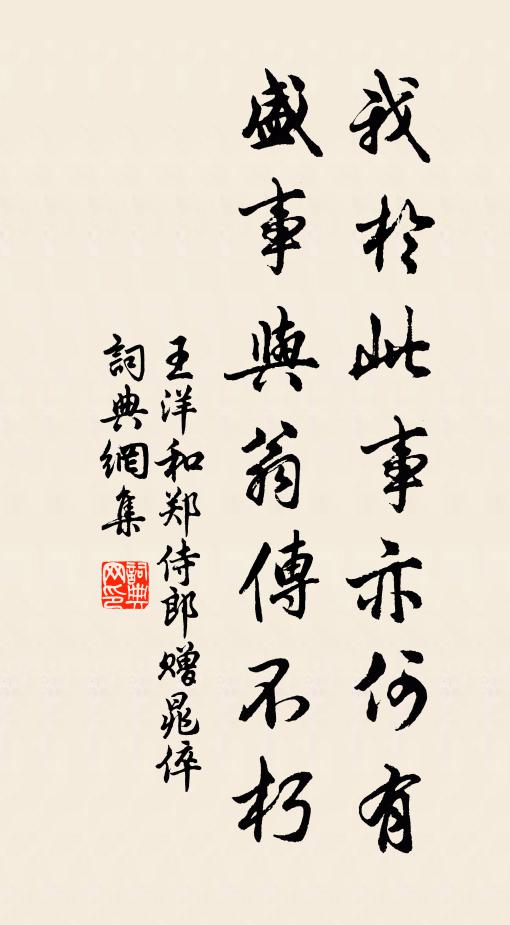 我於此事亦何有
盛事與翁傳不朽
王洋和郑侍郎赠晁倅
詞典網集
詞典网印